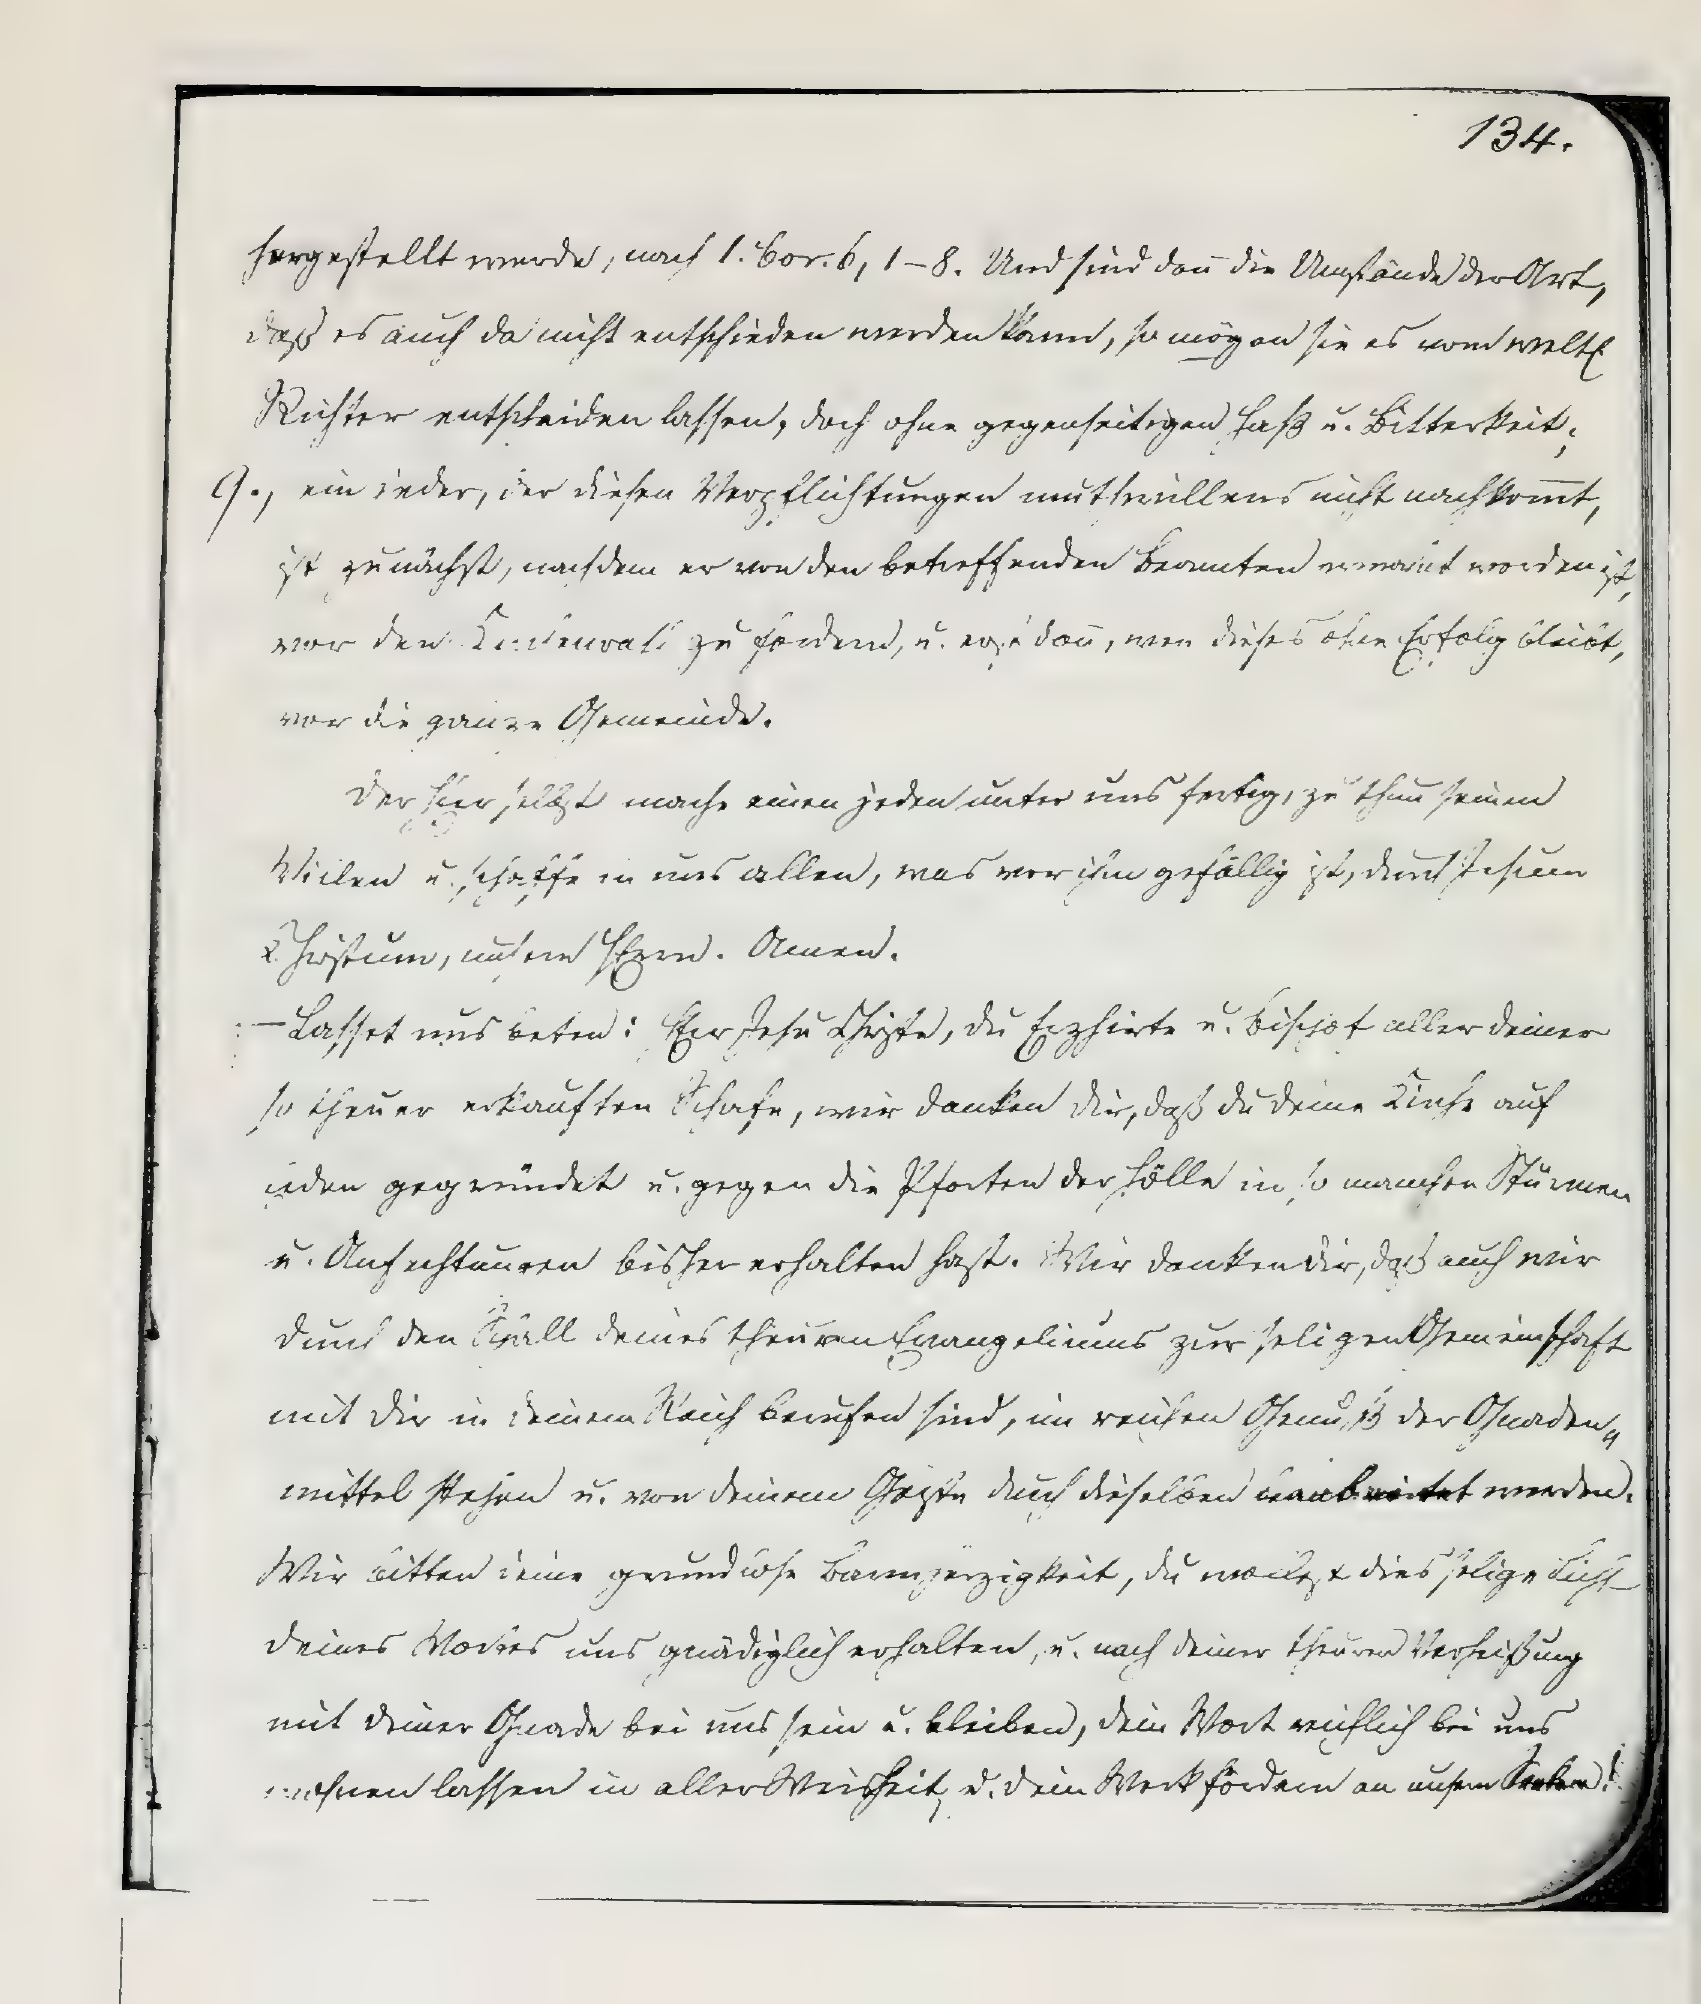 134.
hergestellt werde, nach 1. Cor. 6, 1–8. Und sind dan̄ die Umstände der Art,
daß es auch da nicht entschieden werden kann, so mögen sie es vom weltl.
Richter entscheiden lassen, doch ohne gegenseitigen Haß u. Bitterkeit;
9., ein jeder, der diesen Verpflichtungen muthwillens nicht nachkom̄t,
ist zunächst, nachdem er von den betreffenden Beamten ermahnt worden ist,
vor den Kirchenrath zu fordern, u. erst dan̄, wen dieses ohne Erfolg bleibt,
vor die ganze Gemeinde.
Der Herr selbst mache einen jeden unter uns fertig, zu thun seinen
Willen u. schaffe in uns allen, was vor ihm gefällig ist, durch Jesum
Christum, unsern HErrn. Amen.
– Lasset uns beten: HErr Jesu Christe, du Erzhirte u. Bischof aller deiner
so theuer erkauften Schafe, wir danken dir, daß du deine Kirche auf
Erden gegründet u. gegen die Pforten der Hölle in so manchen Stürmen
u. Anfechtungen bisher erhalten hast. Wir danken dir, daß auch wir
durch den Schall deines theuren Evangeliums zur seligen Gemeinschaft
mit dir in deinem Reich berufen sind, im reichen Genuß der Gnaden„
mittel stehen u. von deinem Geiste durch dieselben werden.
Wir bitten deine grundlose Barmherzigkeit, du wollest dies selige Licht
deines Wortes uns gnädiglich erhalten, u. nach deiner theuren Verheißung
mit deiner Gnade bei uns sein u. bleiben, dein Wort reichlich bei uns
wohnen lassen in aller Weisheit, u. dein Werk fördern an unsern Seelen!